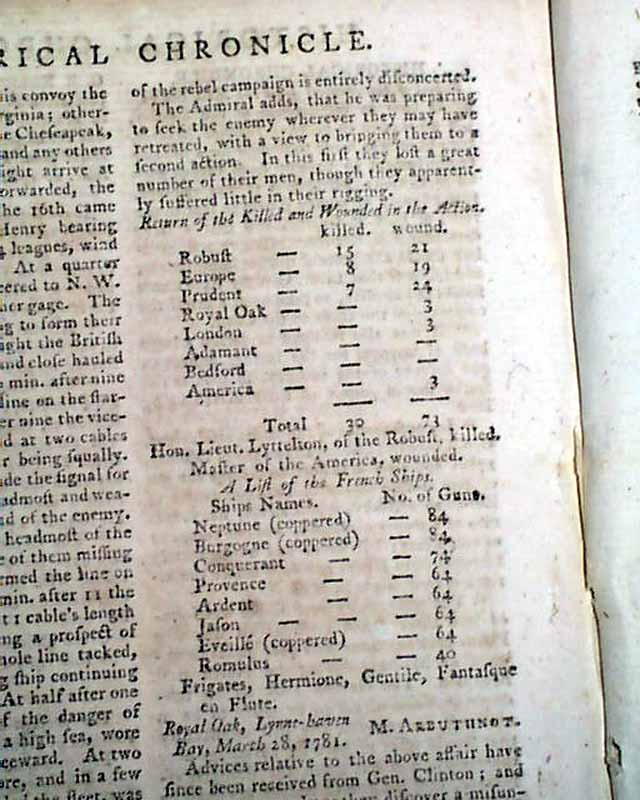 RICAL CHRONICLE.
is convoy the
rginia; other-
e Chesapeak,
and any others
ight arrive at
orwarded, the
he 16th came
Henry bearing
leagues, wind
At a quarter
eered to N. W.
her gage. The
g to form their
ught the British
and close hauled
min. after nine
line on the star-
er nine the vice-
d at two cables
r being squally.
de the signal for
admost and wea-
d of the enemy.
headmost of the
e of them missing
rmed the line on
min. after 11 the
t 1 cable's length
ng a prospect of
hole line tacked,
g ship continuing
At half after one
f the danger of
a high sea, wore
eeward. At two
ore, and in a few
the fleet, was
of the rebel campaign is entirely disconcerted.
The Admiral adds, that he was preparing
to seek the enemy wherever they may have
retreated, with a view to bringing them to a
second action. In this first they lost a great
number of their men, though they apparent-
ly suffered little in their rigging.
Return of the Killed and Wounded in the Action.
killed. wound.
Robust — 15 21
Europe — 8 19
Prudent — 7 24
Royal Oak — — 3
London — — 3
Adamant — — —
Bedford — — —
America — — 3
Total 30 73
Hon. Lieut. Lyttelton, of the Robust, killed.
Master of the America, wounded.
A List of the French Ships.
Ships Names. No. of Guns.
Neptune (coppered) — 84
Burgogne (coppered) — 84
Conquerant — — 74
Provence — — 64
Ardent — — 64
Jason — — — 64
Eveillé (coppered) — 64
Romulus — — 40
Frigates, Hermione, Gentile, Fantasque
en Flute.
Royal Oak, Lynne-haven M. ARBUTHNOT.
Bay, March 28, 1781.
Advices relative to the above affair have
since been received from Gen. Clinton; and
they discover a misun-